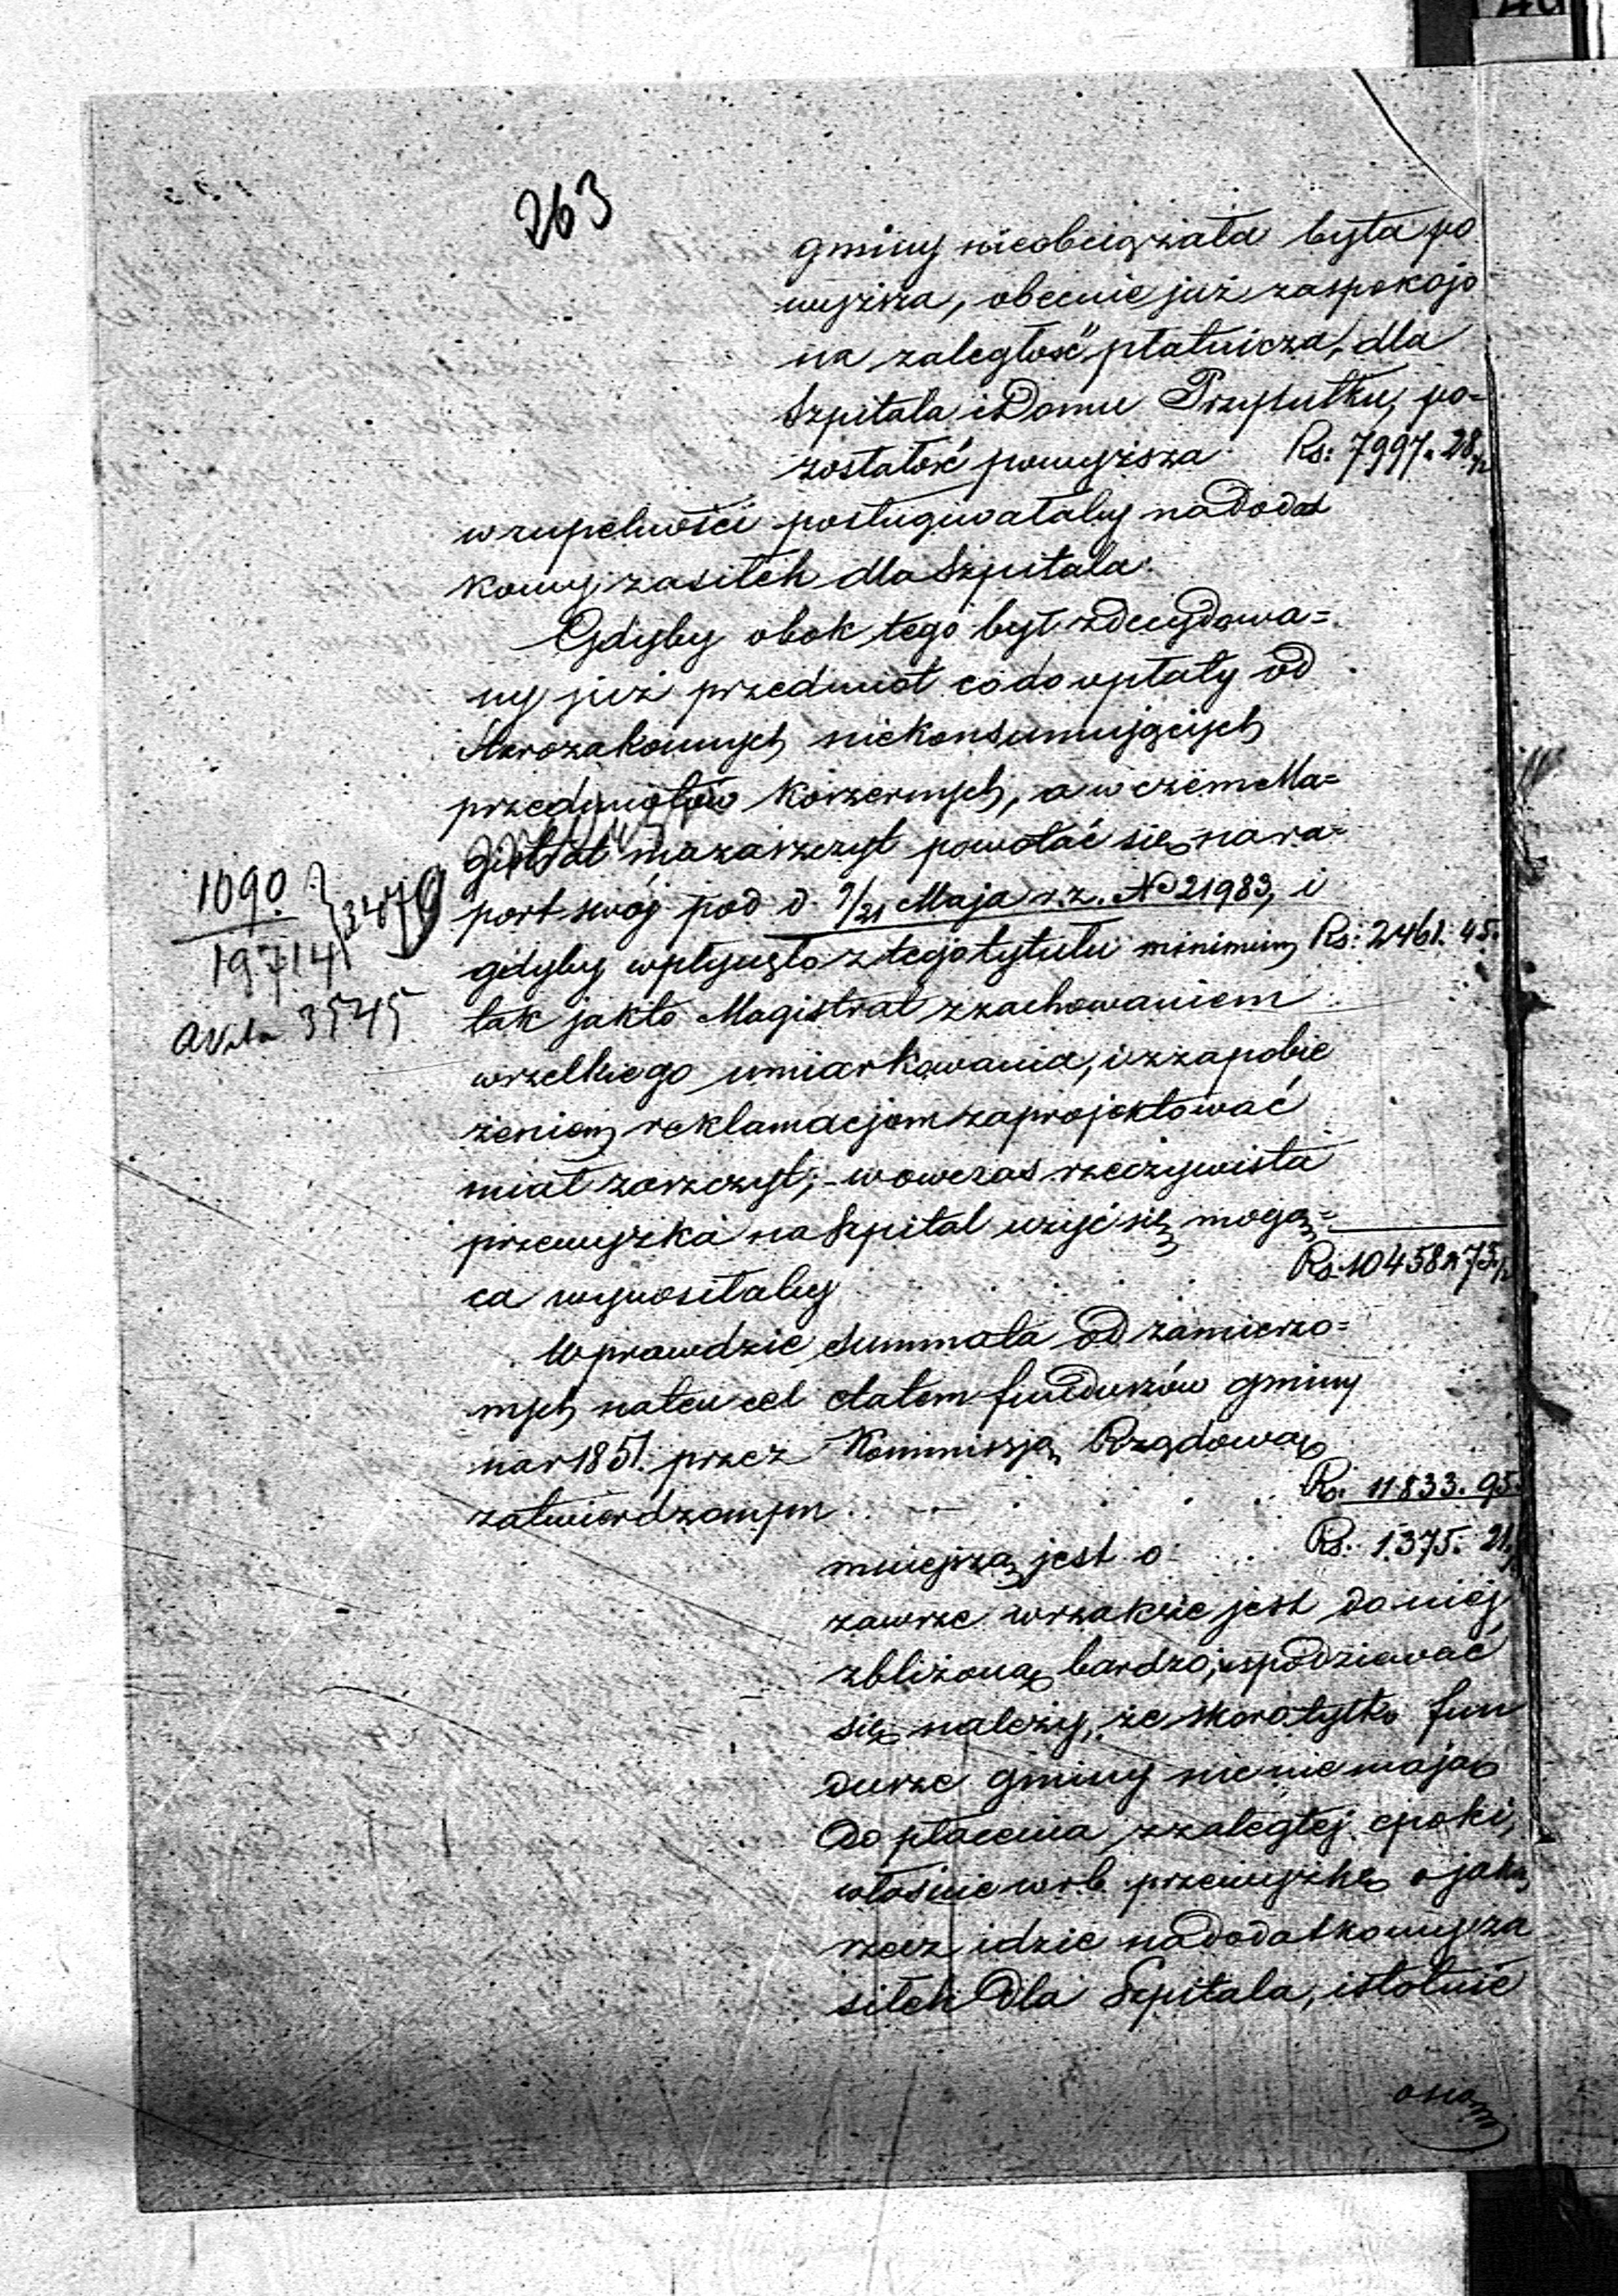 263
gminy nieobciążała była po
wyższa, obecnie już zaspokojo
na zaległość płatnicza, dla
Szpitala i Domu Przytułku, po=
zostałość powyższa Rs: 7997. 28
w zupełności posługiwałaby na dodat
kowy zasiłek dla Szpitala.
Gdyby obok tego był zdecydowa=
ny już przedmiot co do opłaty od
Starozakonnych niekonsumujących
przedmiotów koszernych, a w czem Ma=
gistrat ma zaszczyt powołać się na ra=
port swój pod d. 9/21 Maja r.z. No 21983, i
gdyby wpłynęło z tego tytułu minimum Rs: 2461. 45.
tak jak to Magistrat z zachowaniem
wszelkiego umiarkowania, i z zapobie
żeniem reklamacjom zaprojektować
miał zaszczyt; - wówczas rzeczywista
przewyżka na Szpital użyć się mogą=
ca wynosiłaby Rs. 10458. 73
Wprawdzie summa ta od zamierzo=
nych na ten cel etatem funduszów gminy
na r 1851. przez Kommissją Rządową
zatwierdzonym Rs. 11833. 95.
mniejszą jest o Rs. 1375. 21
zawsze wszakże jest do niej
zbliżoną bardzo, i spodziewać
się należy, że skoro tylko fun
dusze gminy nic nie mają
do płacenia z zaległej epoki,
właśnie w r.b. przewyżkę o jaką
rzecz idzie na dodatkowy za
siłek dla Szpitala, istotnie
1090
19714
3479
3545